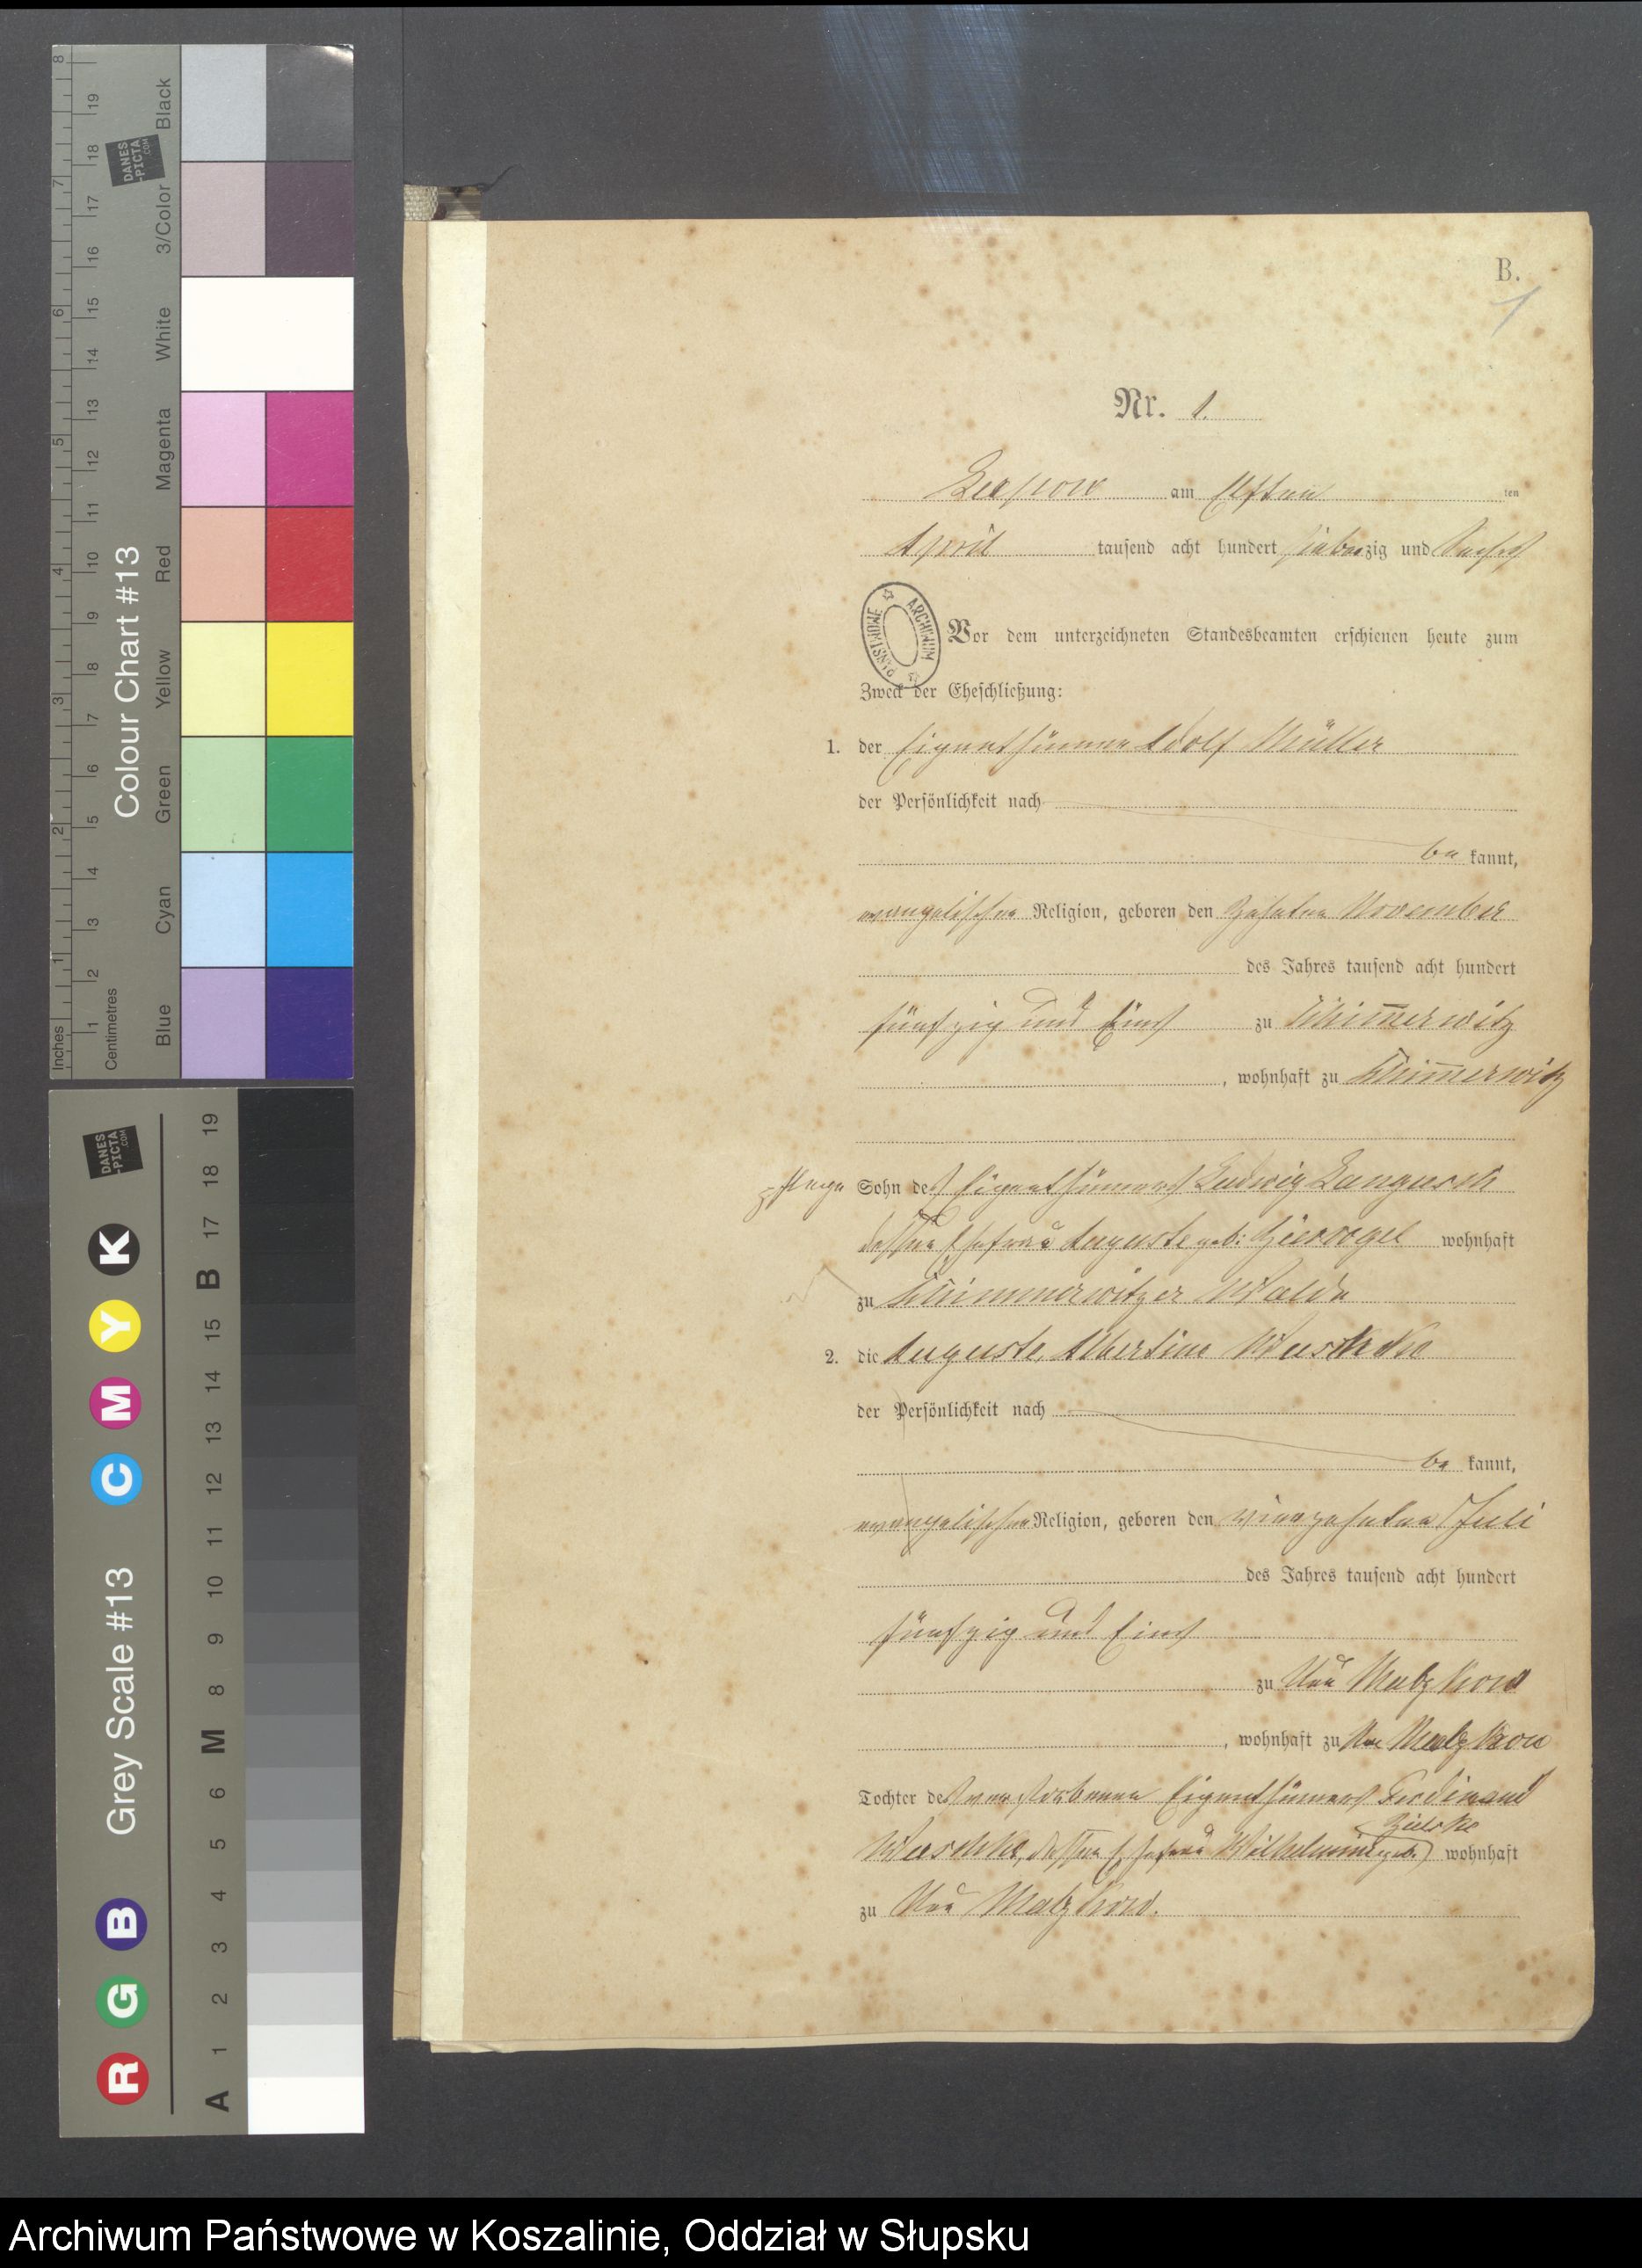 8
19
18
7
17
16
6
15
14
5
13
12
11
4
10
9
3
8
7
2
6
5
4
1
3
2
1
Inches
Centimetres
Colour Chart #13
Blue
Cyan
Green
Yellow
Red
Magenta
White
3/Color
Black
DANES
-PICTA
.COM
DANES
-PICTA
.COM
R G B Grey Scale #13 C M Y K
A 1 2 3 4 5 6 M 8 9 10 11 12 13 14 15 B 17 18 19
B.
1
Nr. 1.
am Elften ten
April tausend acht hundert siebenzig und Sechs
ARCHIWUM PAŃSTWOWE
Vor dem unterzeichneten Standesbeamten erschienen heute zum
Zweck der Eheschließung:
1. der Eigenthümer Adolf Müller
der Persönlichkeit nach
be kannt,
evangelischer Religion, geboren den Zehnten November
des Jahres tausend acht hundert
fünfzig und Eins zu Schimmerwitz
, wohnhaft zu Schimmerwitz
Pflege Sohn des Eigenthümers Ludwig
dessen Ehefrau Auguste geb: wohnhaft
zu Schimmerwitzer Walde
2. die Auguste Albertine
der Persönlichkeit nach
be kannt,
evangelischer Religion, geboren den vierzehnten Juli
des Jahres tausend acht hundert
fünfzig und Eins
zu Neu
, wohnhaft zu Neu
Tochter des verstorbenen Eigenthümers Ferdinand
dessen Ehefrau Wilhelmine geb. wohnhaft
zu Neu
Archiwum Państwowe w Koszalinie, Oddział w Słupsku